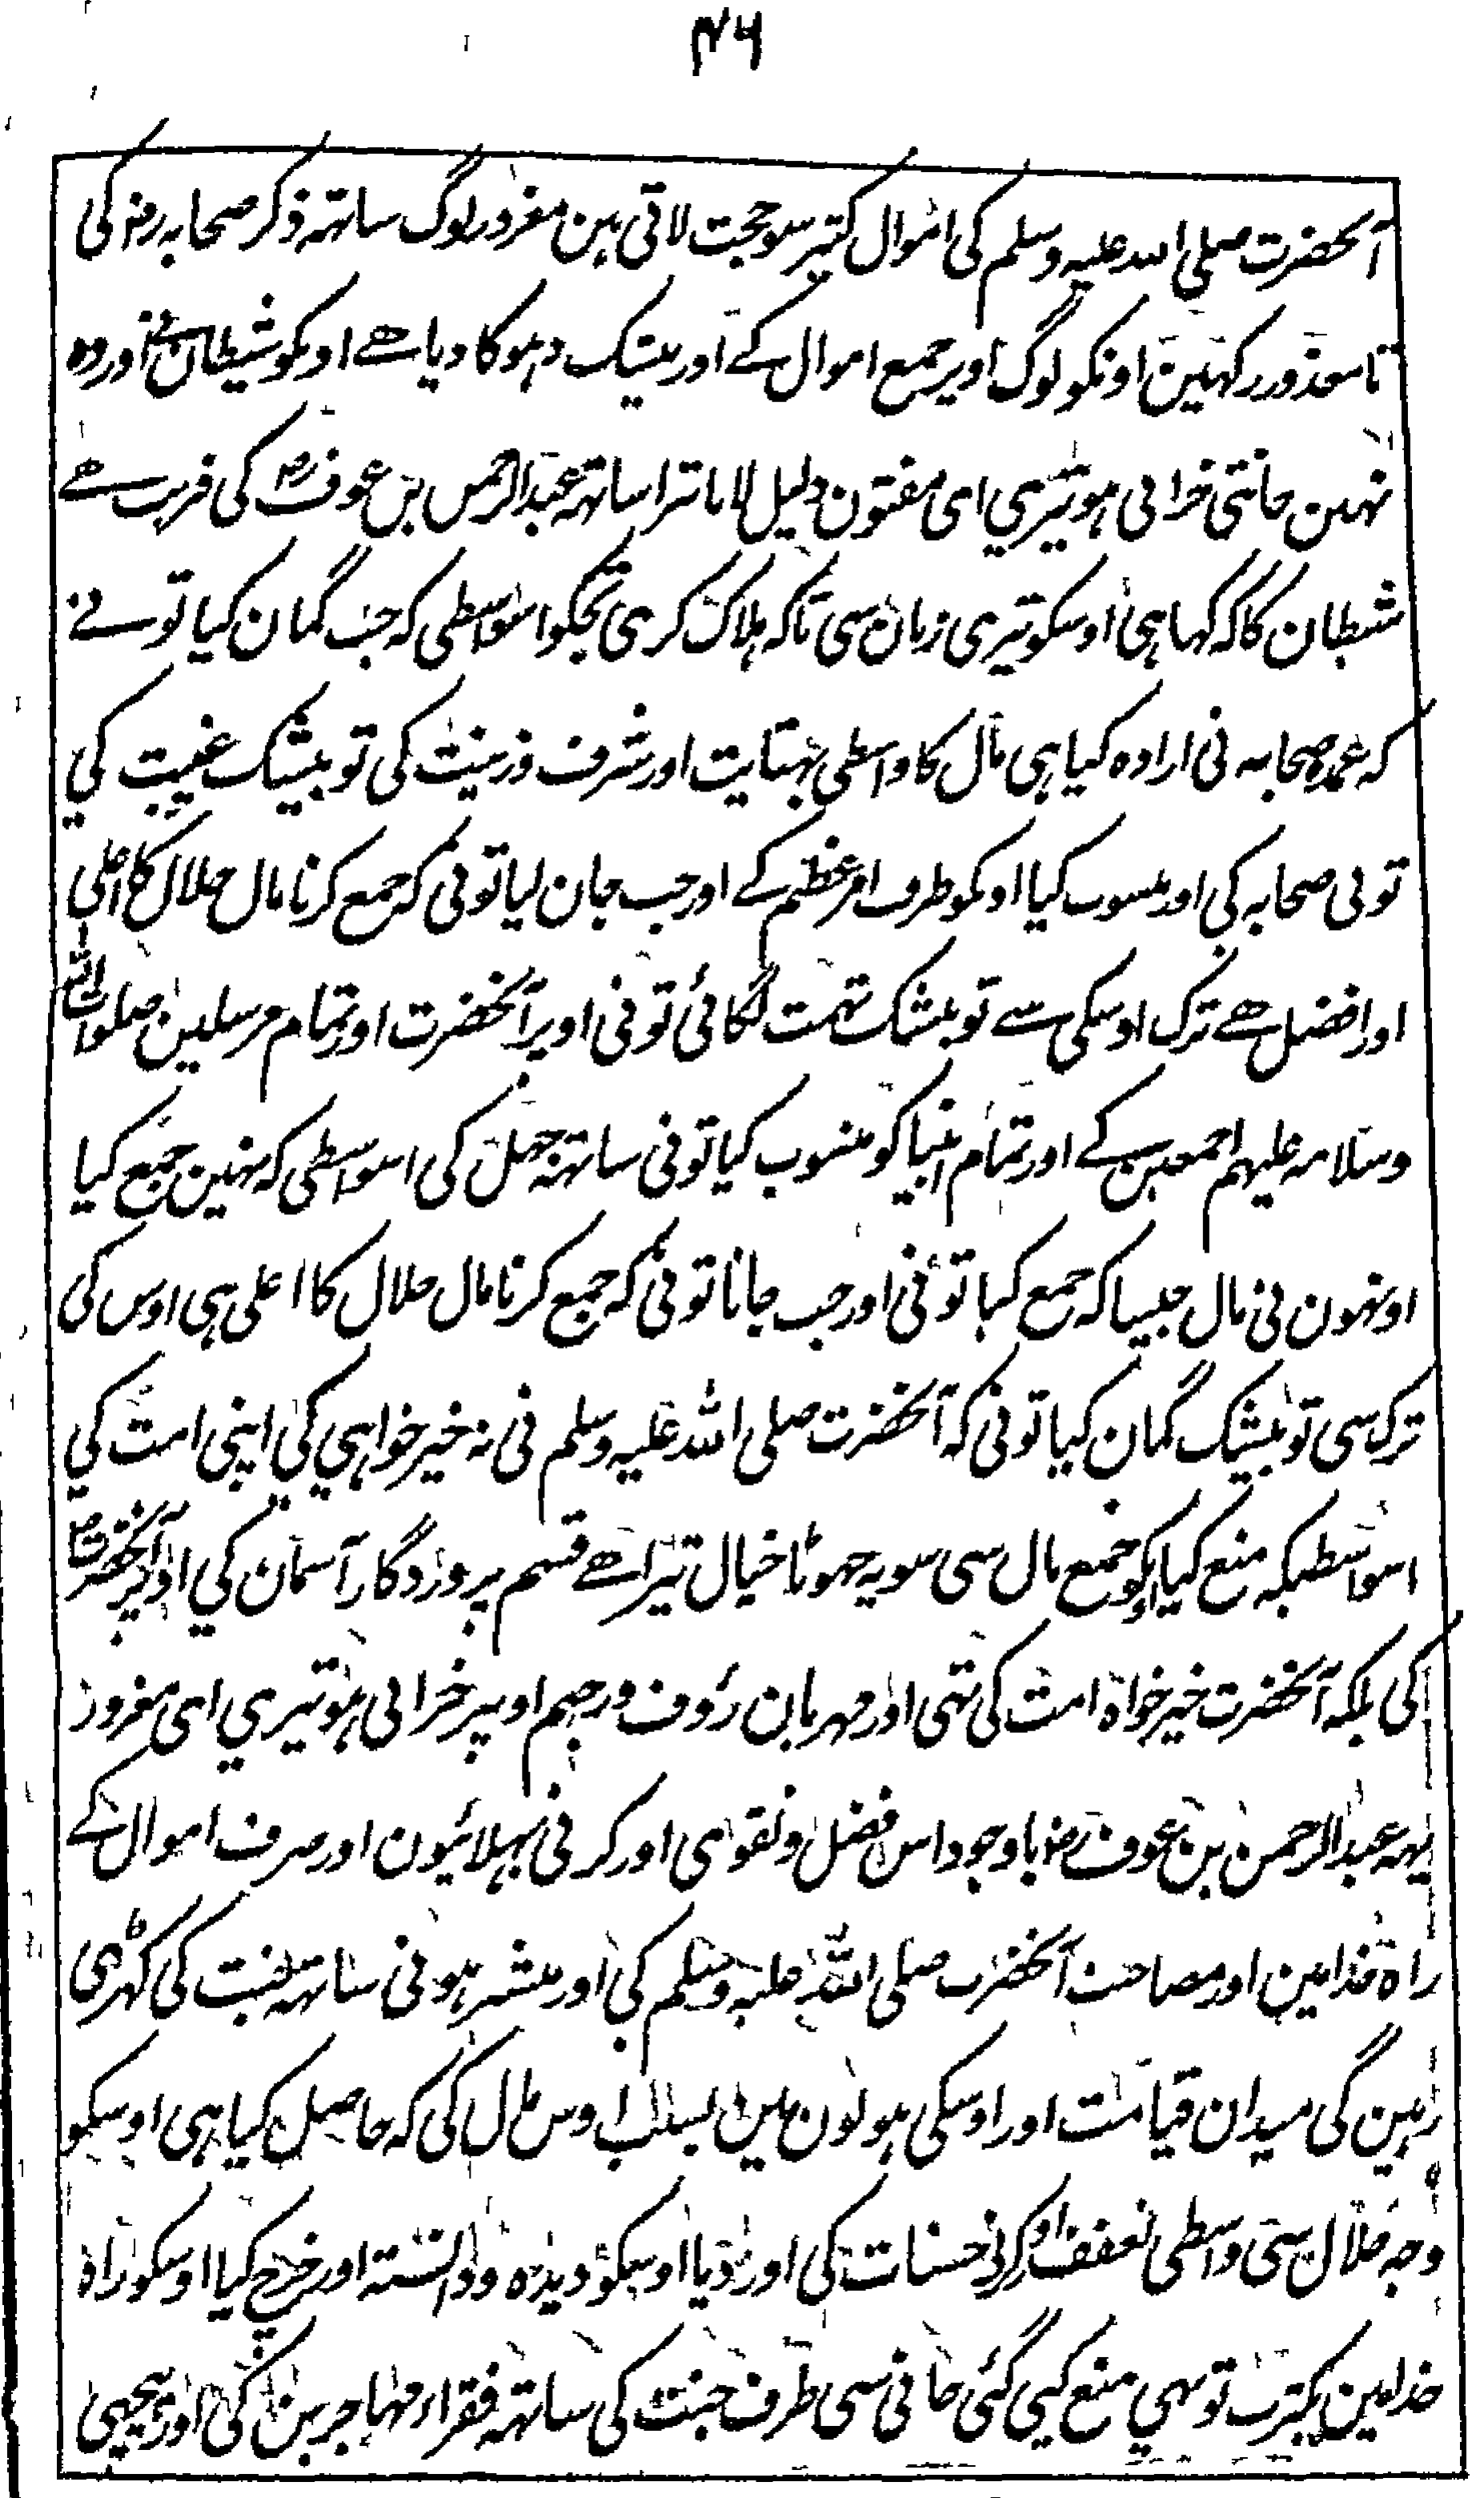 ۴۶
آنحضرت صلی اللہ علیہ وسلم کی اموال کثیر سو حجت لاتی ہین مغرور لوگ ساتہہ ذکر صحابہ رضہ کی
تا معذور رکہین اونکو لوگ اوپر جمع اموال کے اور بیشک دہوکا دیا ہے اونکو شیطان نے اور وہ
نہین جانتی خرابی ہو تیری ای مفتون دلیل لانا تیرا ساتہہ عبدالرحمن بن عوف رض کی فریب ہے
شیطان کا کہ کہا ہی اوسکو تیری زبان سی تاکہ ہلاک کری تجکو اسواسطی کہ جب گمان کیا تو نے
کہ عمدہ صحابہ نی ارادہ کیا ہی مال کا واسطی بہتایت اور شرف و زینت کی تو بیشک غیبت کی
تو نی صحابہ کی اور منسوب کیا اونکو طرف امر عظیم کے اور جب جان لیا تو نی کہ جمع کرنا مال حلال کا اعلی
اور افضل ہے ترک اوسکی سے تو بیشک تہمت لگائی تو نی اوپر آنحضرت اور تمام مرسلین صلوات اللہ
وسلامہ علیہم اجمعین کے اور تمام انبیا کو منسوب کیا تو نی ساتہہ جہل کی اسواسطی کہ نہین جمع کیا
اونہون نی مال جیسا کہ جمع کیا تو نی اور جب جانا تو نی کہ جمع کرنا مال حلال کا اعلی ہی اوس کی
ترک سی تو بیشک گمان کیا تو نی کہ آنحضرت صلی اللہ علیہ وسلم نی نہ خیر خواہی کی اپنی امت کی
اسواسطیکہ منع کیا اونکو جمع مال سی سو یہ جہوٹا خیال تیرا ہے قسم پروردگار آسمان کی اوپر آنحضرت ص
کی بلکہ آنحضرت خیر خواہ امت کی تہی اور مہربان رؤف و رحیم اوپر خرابی ہو تیری ای مغرور
یہہ عبدالرحمن بن عوف رضہ باوجود اس فضل و تقوی اور کرنی بہلائیون اور صرف اموال کے
راہ خدا مین اور مصاحبت آنحضرت صلی اللہ علیہ وسلم کی اور مبشر ہونی ساتہہ جنت کی کہڑی
رہین گی میدان قیامت اور اوسکی ہولون مین بسبب اوس مال کی کہ حاصل کیا ہی اوسکو
وجہ حلال سی واسطی تعفف اور کرنی حسنات کی اور دیا اوسکو دیدہ و دانستہ اور خرچ کیا اوسکو راہ
خدا مین بکثرت تو بہی منع کیی گئی جانی سی طرف جنت کی ساتہہ فقراء مہاجرین کی اور پیچہی